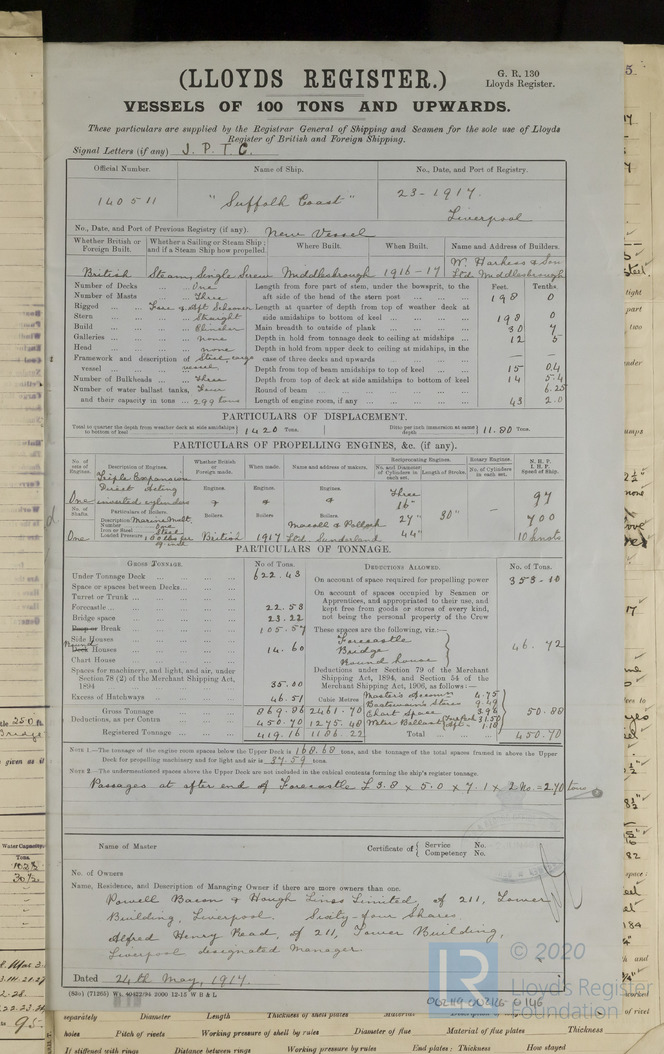 (LLOYDS REGISTER.)
G. R. 130
Lloyds Register.
VESSELS OF 100 TONS AND UPWARDS.
These particulars are supplied by the Registrar General of Shipping and Seamen for the sole use of Lloyds
Register of British and Foreign Shipping.
Signal Letters (if any) J. P. T. C.
Official Number. Name of Ship. No., Date, and Port of Registry.
140511 "Suffolk Coast" 23-1917.
Liverpool
No., Date, and Port of Previous Registry (if any). New Vessel
Whether British or Foreign Built. Whether a Sailing or Steam Ship; and if a Steam Ship how propelled Where Built. When Built. Name and Address of Builders.
British Steam, Single Screw Middlesbrough 1916-17 W. Harkess & Son Ltd. Middlesbrough
Feet. Tenths.
Number of Decks One Length from fore part of stem, under the bowsprit, to the
Number of Masts Three aft side of the head of the stern post 198 0
Rigged Fore & Aft Schooner Length at quarter of depth from top of weather deck at
Stern Straight side amidships to bottom of keel 198 0
Build Clincher Main breadth to outside of plank 30 7
Galleries none Depth in hold from tonnage deck to ceiling at midships 12 5
Head none Depth in hold from upper deck to ceiling at midships, in the
Framework and description of Steel, cargo case of three decks and upwards — —
vessel vessel Depth from top of beam amidships to top of keel 15 0.4
Number of Bulkheads Three Depth from top of deck at side amidships to bottom of keel 14 5.4
Number of water ballast tanks, Four Round of beam 6.25
and their capacity in tons 299 tons Length of engine room, if any 43 2.0
PARTICULARS OF DISPLACEMENT.
Total to quarter the depth from weather deck at side amidships to bottom of keel 1420 Tons. Ditto per inch immersion at same depth 11.80 Tons.
PARTICULARS OF PROPELLING ENGINES, &c. (if any).
No. of sets of Engines. Description of Engines. Whether British or Foreign made. When made. Name and address of makers. Reciprocating Engines. Rotary Engines. N. H. P. I. H. P. Speed of Ship.
No. and Diameter of Cylinders in each set. Length of Stroke. No. of Cylinders in each set.
Triple Expansion
Direct Acting Engines. Engines. Engines. Three
One inverted cylinders & & & 16" 97
No. of Shafts. Particulars of Boilers. Boilers. Boilers Boilers 27" 30" — 700
Description Marine Mult.
Number One
Iron or Steel Steel
One Loaded Pressure British 1917 Ltd. Sunderland 44" 10 knots
PARTICULARS OF TONNAGE.
GROSS TONNAGE. No. of Tons DEDUCTIONS ALLOWED. No. of Tons.
Under Tonnage Deck 622.43 On account of space required for propelling power 353.10
Space or spaces between Decks On account of spaces occupied by Seamen or
Turret or Trunk Apprentices, and appropriated to their use, and
Forecastle 22.53 kept free from goods or stores of every kind,
Bridge space 23.22 not being the personal property of the Crew
Poop or Break 105.57 These spaces are the following, viz:—
Side Houses Forecastle
Round Deck Houses 14.60 Bridge 46.72
Chart House Round house
Spaces for machinery, and light, and air, under Deductions under Section 79 of the Merchant
Section 78 (2) of the Merchant Shipping Act, Shipping Act, 1894, and Section 54 of the
1894 35.00 Merchant Shipping Act, 1906, as follows:—
Excess of Hatchways 46.51 Cubic Metres Master's Accom 4.75
Boatswain's Stores 9.49
Gross Tonnage 869.86 2461.70 Chart Space 3.96 50.88
Deductions, as per Contra 450.70 1275.48 Water Ballast 31.50
1.18
Registered Tonnage 419.16 1186.22 Total 450.70
NOTE 1.—The tonnage of the engine room spaces below the Upper Deck is 168.68 tons, and the tonnage of the total spaces framed in above the Upper
Deck for propelling machinery and for light and air is 37.59 tons.
NOTE 2.—The undermentioned spaces above the Upper Deck are not included in the cubical contents forming the ship's register tonnage.
Passages at after end of Forecastle £ 3.8 x 5.0 x 7.1 x 2 No. = 2.70 tons
Name of Master Certificate of { Service No.
Competency No.
No. of Owners
Name, Residence, and Description of Managing Owner if there are more owners than one.
Powell Bacon & Hough Lines Limited, of 211, Tower
Building, Liverpool. Sixty-four Shares.
Alfred Henry Read, of 211, Tower Building,
Liverpool designated Manager.
Dated 24th May, 1917.
(83c) (71265) Wt. 40422/94 2000 12-15 W B & L
LR
© 2020
Lloyd's Register
Foundation
separately Diameter Length Thickness of shell plates Material
holes Pitch of rivets Working pressure of shell by rules Diameter of flue Material of flue plates Thickness
If stiffened with rings Distance between rings Working pressure by rules End plates: Thickness How stayed